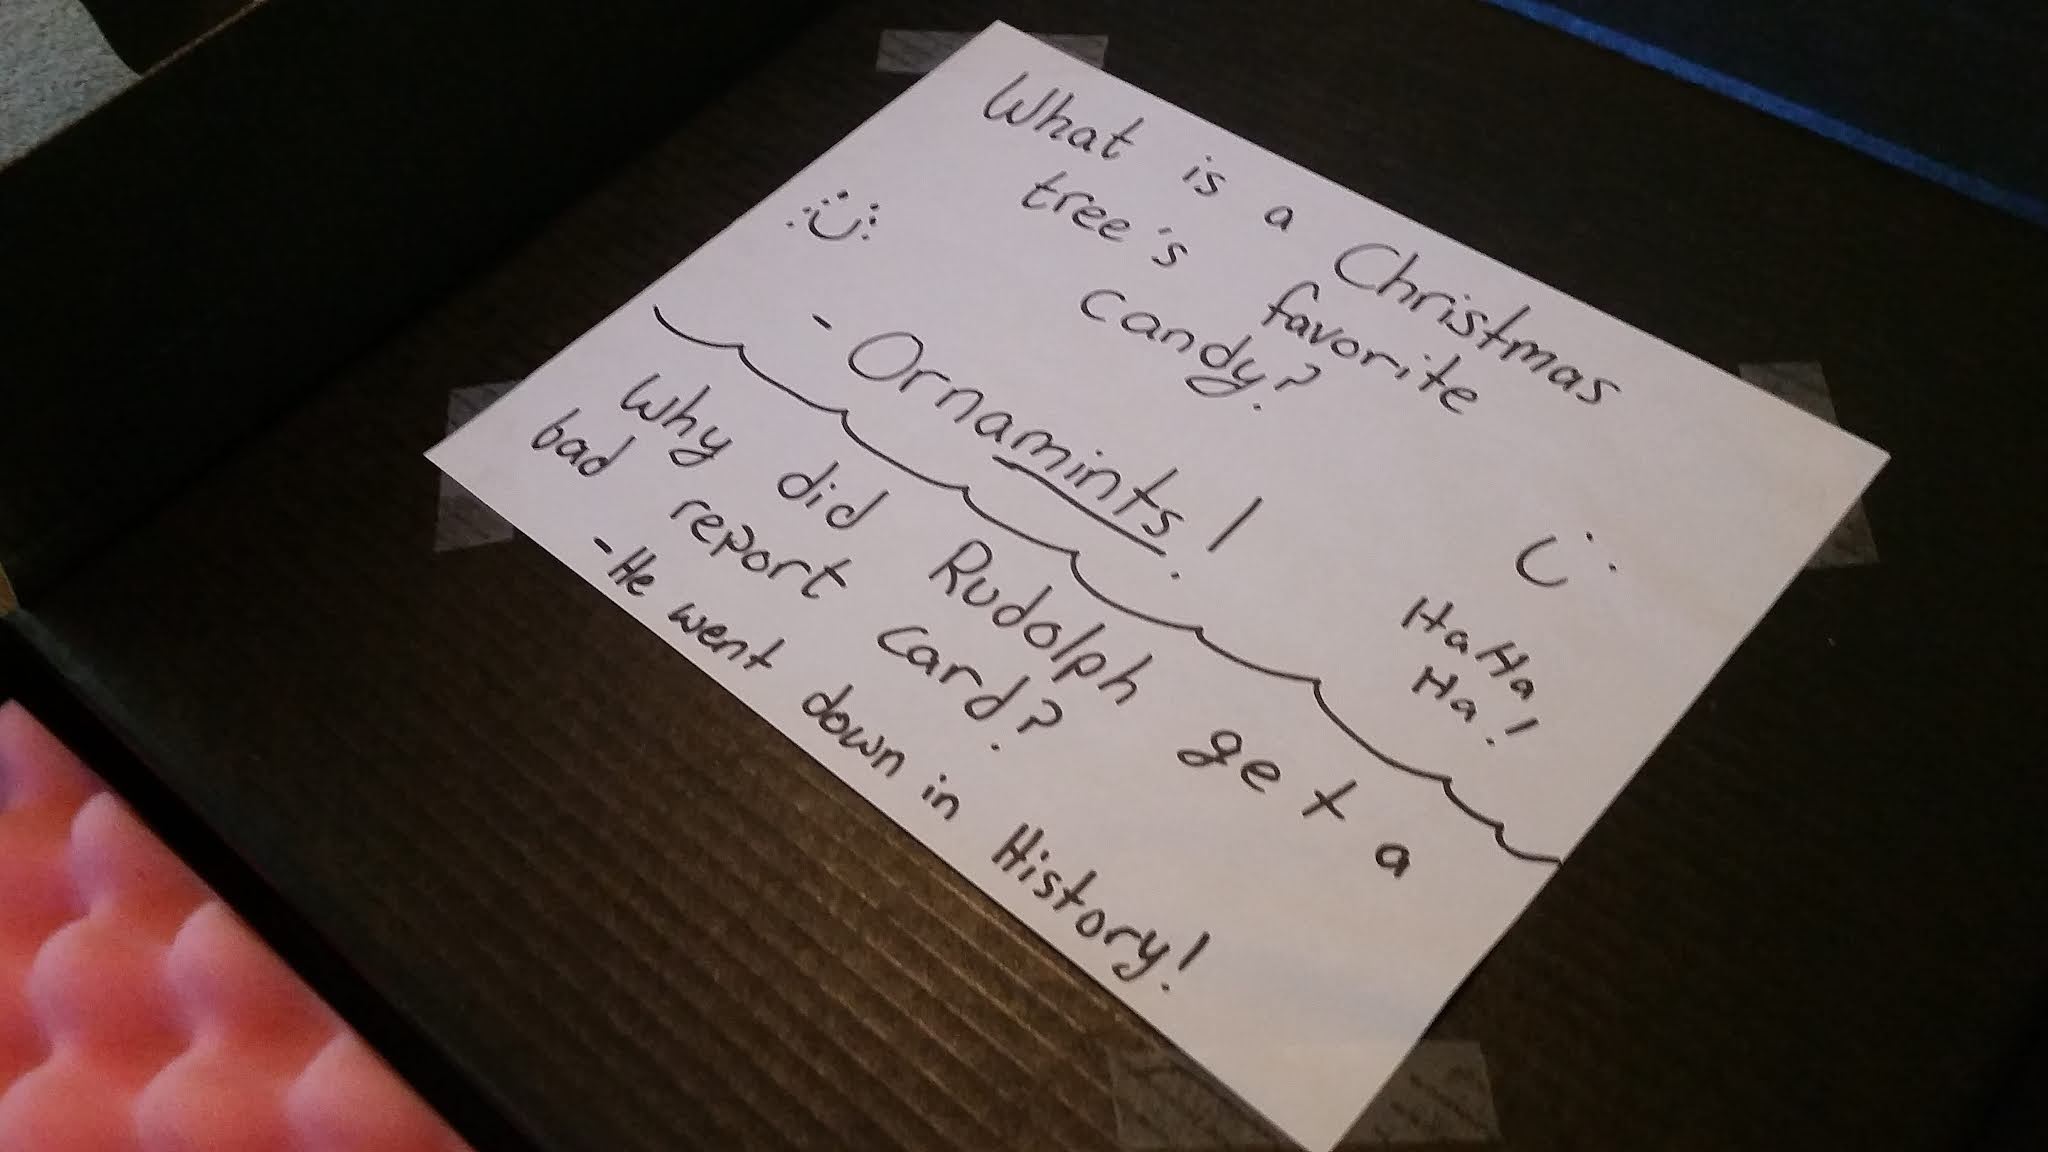 What is a Christmas
tree's favorite
candy?
- Ornamints!
Ha Ha
Ha!
Why did Rudolph get a
bad report card?
- He went down in History!